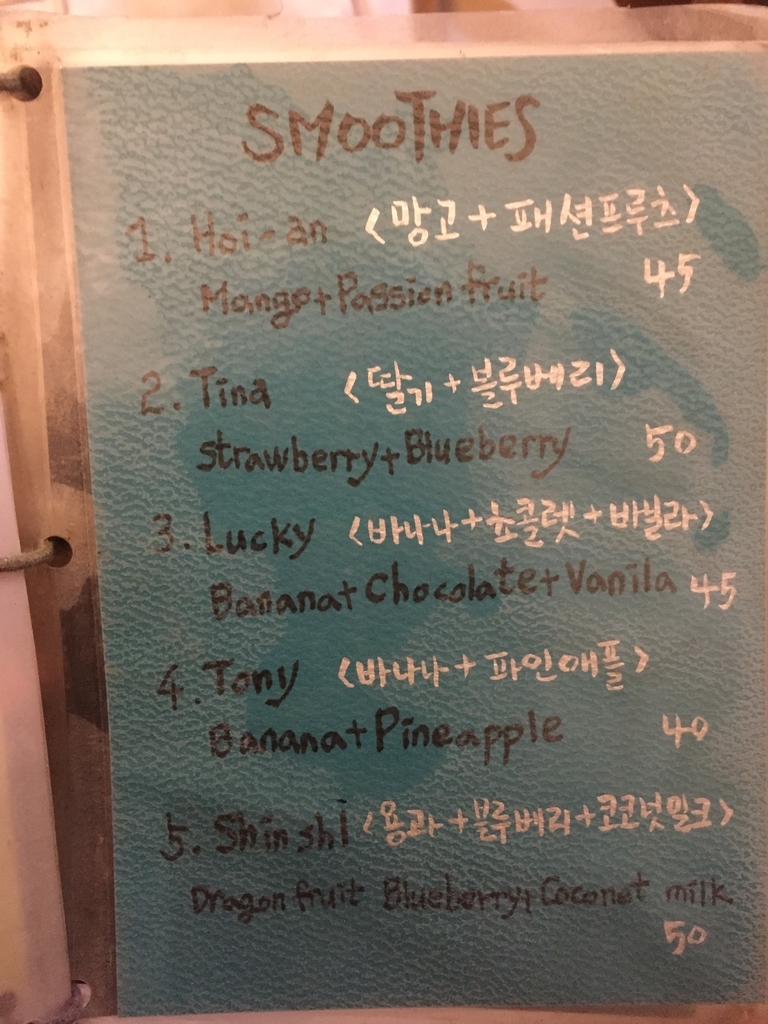 SMOOTHIES
1. Hoi-an <망고+패션프루츠>
Mango+Passion fruit 45
2. Tina <딸기+블루베리>
Strawberry+Blueberry 50
3. Lucky <바나나+쵸콜렛+바닐라>
Banana+Chocolate+Vanila 45
4. Tony <바나나+파인애플>
Banana+Pineapple 40
5. Shinshi <용과+블루베리+코코넛밀크>
Dragon fruit Blueberry+Coconet milk
50